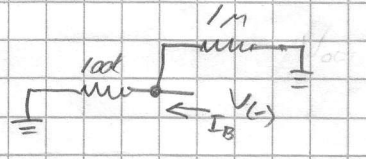 1M
100k
V(-)
IB